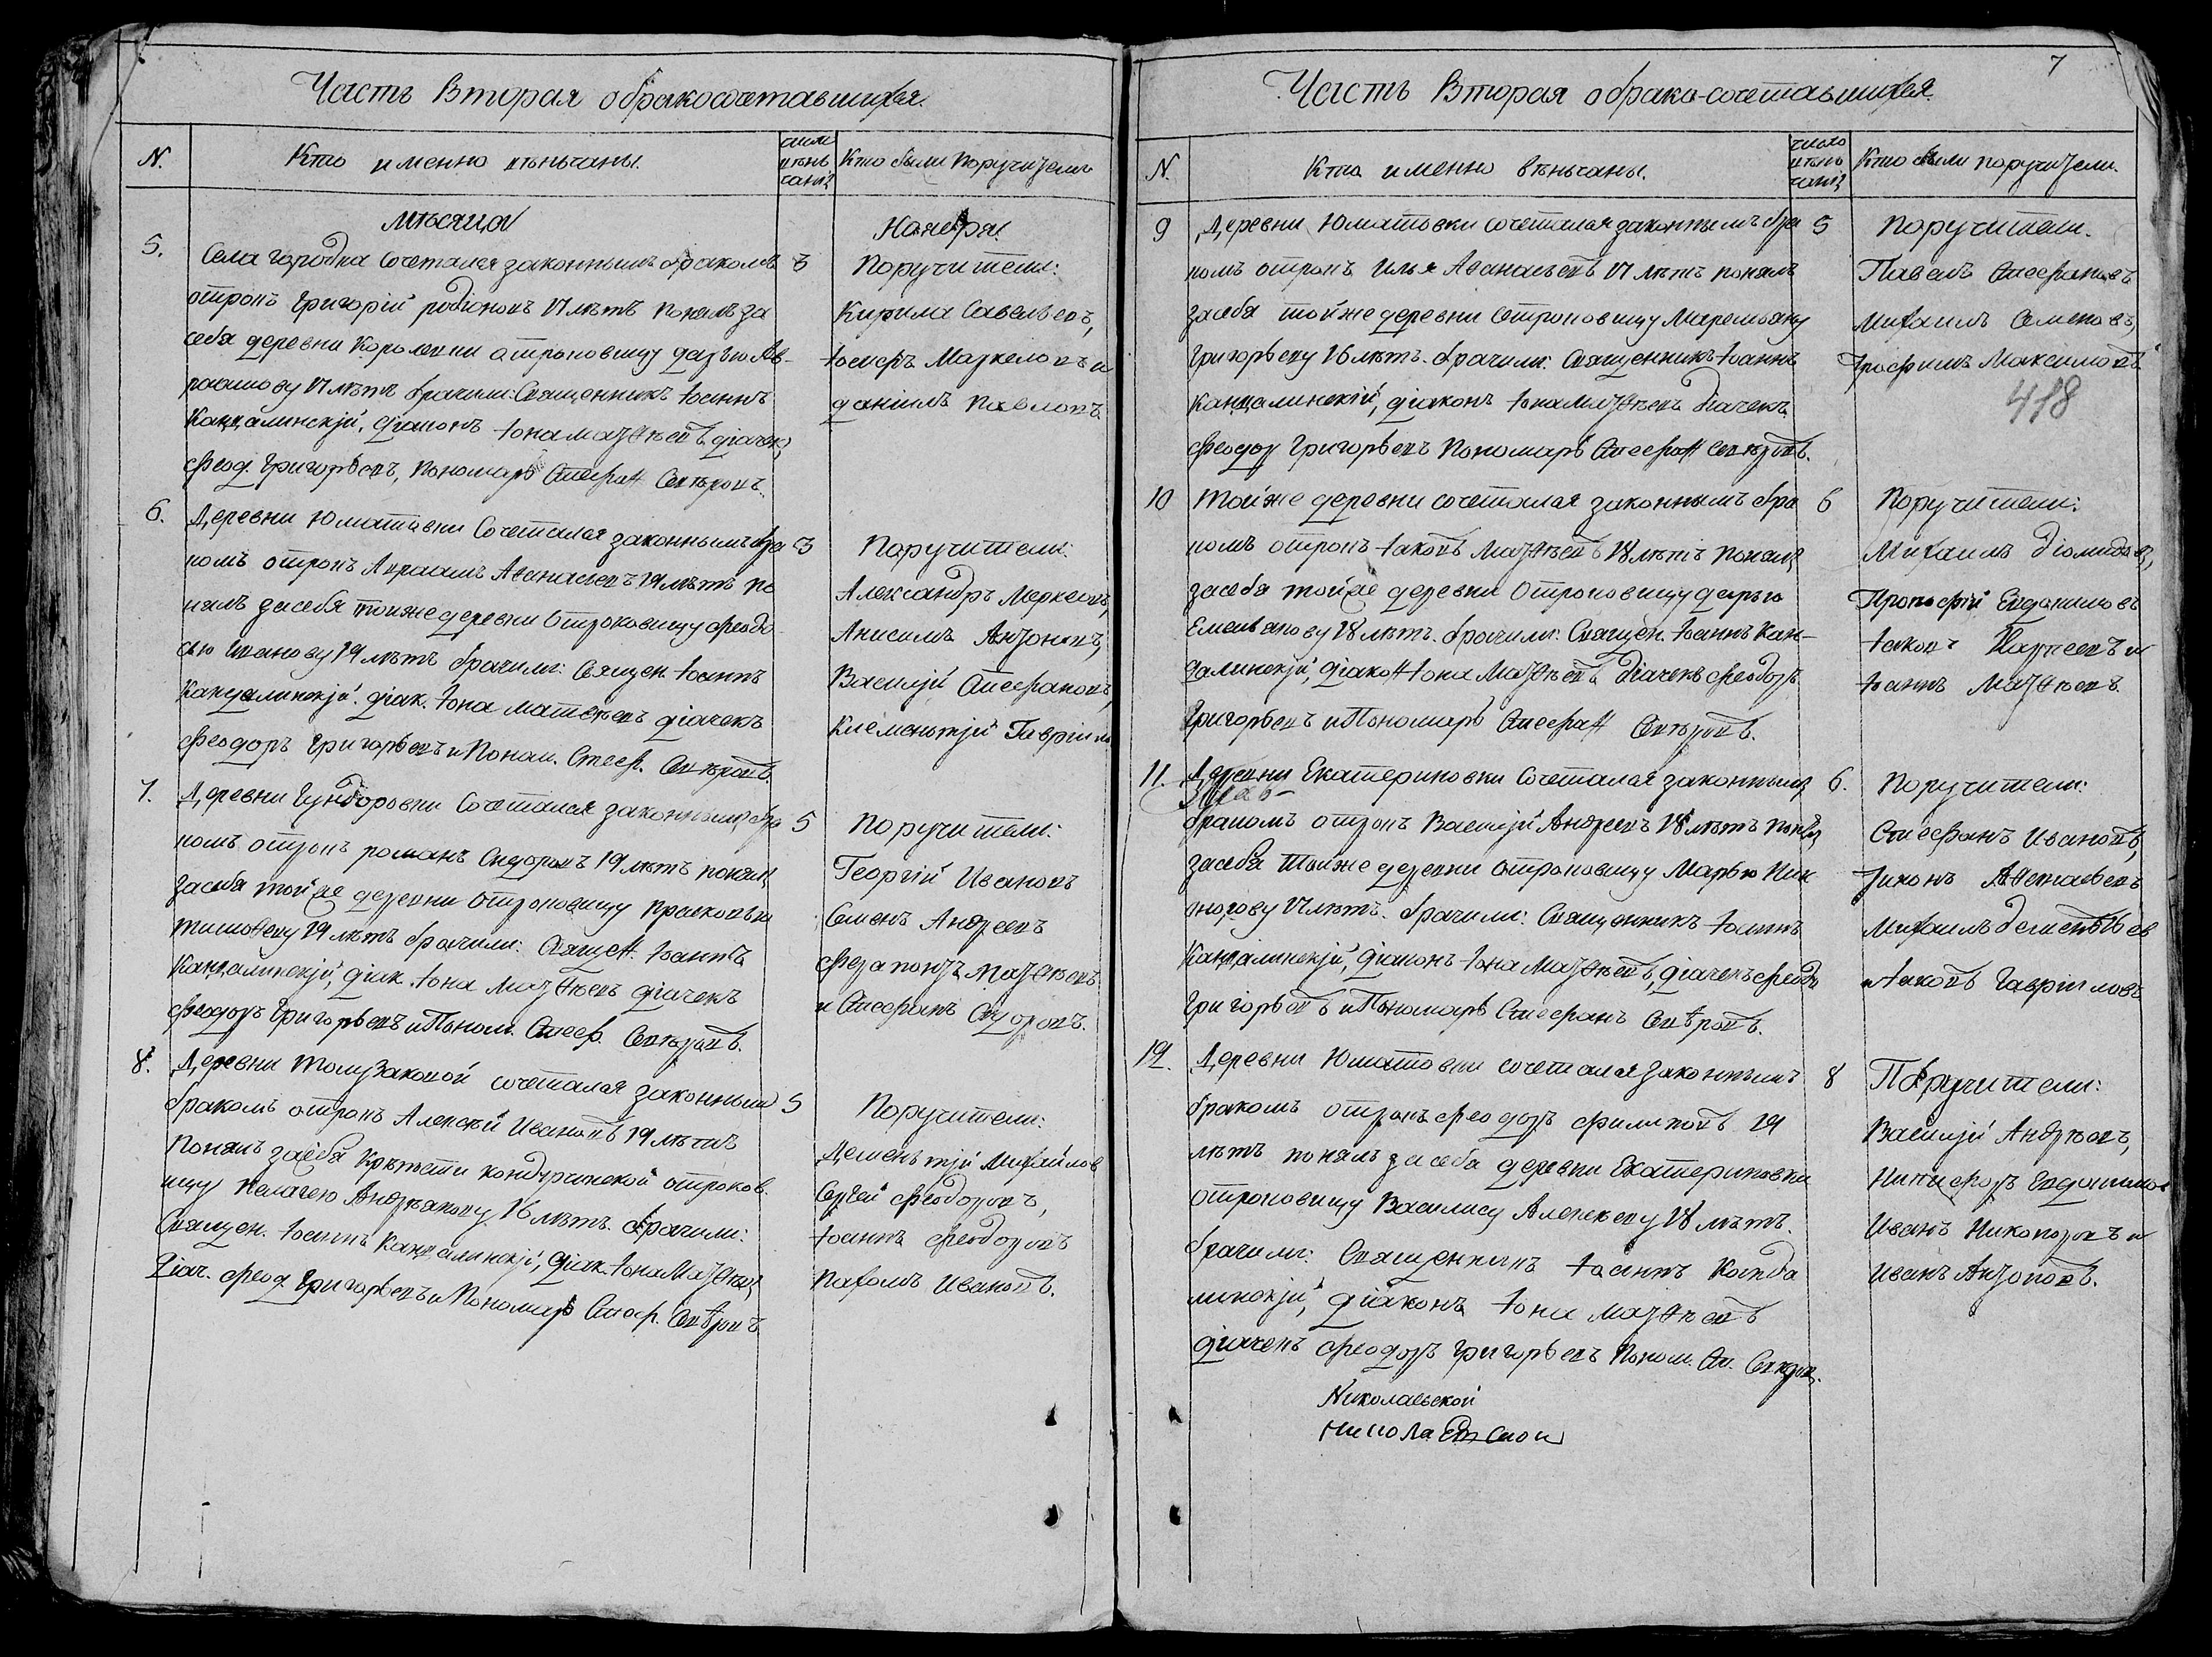 Часть Вторая о бракосочетавшихся.
N.
Кто именно вѣнчаны.
число вѣнь чанiя
Кто были Поручители
мѣсяца
Ноября
5.
Села городка Сочетался законнымъ бракомъ
отрокъ Григорiй родiоновъ 17 лѣтъ понялъ за
себя деревни Королевки отроковицу дарью Ав-
раамову 17 лѣтъ брачили: Священникъ Iоаннъ
Кандалинскiй, дiаконъ Iона матѳѣевъ дiачекъ
Феод. Григорьевъ, пономарь Стефан
Поручители:
Кирила Савельевъ,
Маркеловъ и
данiилъ Павловъ
6.
Деревни Юматовки Сочетался законнымъ бра
3
комъ отрокъ Авраамъ Аѳанасьевъ 19 лѣтъ по
нялъ за себя тойже деревни отроковицу Феодо
сью Иванову 19 лѣтъ брачили: Священ. Iоаннъ
Кандалинскiй. дiак. Iона матѳѣевъ дiачекъ
Феодоръ Григорьевъ и Поном. Стеф.
Поручители:
Александръ Маркеловъ,
Анисимъ Антоновъ,
Василiй Стефановъ,
Клеменьтiй Гаврiил
7.
Деревни Гундоровки Сочетался законнымъ бра
5
комъ отрокъ романъ Сидоровъ 19 лѣтъ понялъ
за себя тойже деревни отроковицу
Тимоѳееву 19 лѣтъ брачили: Священ. Iоаннъ
Кандалинскiй, дiак. Iона Матѳѣевъ дiачекъ
Феодоръ Григорьевъ и Поном. Стеф.
Поручители:
Георгiй Ивановъ
Семенъ Андреевъ
Ферапонтъ Матѳѣевъ
и Стефанъ Сидоровъ.
8.
Деревни сочетался законным
5
бракомъ отрокъ Алексѣй Ивановъ 19 лѣтъ
понялъ за себя Крѣпости кондурчинской отроков.
ицу Пелагею Андреянову 16 лѣтъ. брачили:
Священ. Iоаннъ Кандалинскiй, дiак. Iона Матѳѣевъ
Дiач. Феод Григорьевъ и Пономарь Стеф.
Поручители:
Деменьтiй Михайлов
Сергей Феодоровъ,
Iоаннъ Феодоровъ
Пахомъ Ивановъ.
7
Часть Вторая о брако-сочетавшихся
N.
Кто именно вѣньчаны.
число вѣнь чанiя
Кто были поручители.
9
Деревни Юматовки сочетался законнымъ бра
5
комъ отрокъ Илья Аѳанасьевъ 17 лѣтъ понялъ
за себя тойже деревни Отроковицу Маремьяну
Григорьеву 16 лѣтъ. брачили: Священникъ Iоаннъ
Кандалинскiй, дiаконъ Iона Матѳѣевъ дiачекъ
Феодор Григорьевъ Пономарь Стефан
Поручители.
Павелъ Стефановъ
Михаилъ Семеновъ,
Трофимъ Максимовъ
418
10
Тойже деревни сочетался законнымъ бра
6
комъ отрокъ Iаковъ Матѳѣевъ 18 лѣтъ понялъ
за себя тойже деревни Отроковицу дарью
Емельянову 18 лѣтъ. брачили: Священ. Iоаннъ Кан-
далинскiй, дiакон Iона Матѳѣевъ дiачекъ Феодоръ
Григорьевъ и Пономарь Стефан
Поручители:
Михаилъ дiомидовъ,
Прокофiй Евдокимовъ
Iаковъ и
Iоаннъ Матѳѣевъ.
11.
Деревни Екатериновки Сочетался законнымъ
6.
бракомъ отрокъ Василiй Андреевъ 18 лѣтъ понялъ
за себя тойже деревни отроковицу Марью Ник
анорову 17 лѣтъ. брачили: Священникъ Iоаннъ
Кандалинскiй, дiаконъ Iона Матѳѣевъ, дiачекъ Феодо
Григорьевъ и Пономарь Стефанъ
Поручители:
Стефанъ Ивановъ,
Тихонъ Аѳанасьевъ
Михаилъ дементьев
и Iаковъ Гаврiиловъ
12.
Деревни Юматовки сочетался законнымъ
8
бракомъ отрокъ Феодоръ Филиповъ 19
лѣтъ понялъ за себя деревни Екатериновки
отроковицу Василису Алексееву 18 лѣтъ.
брачили: Священникъ Iоаннъ Канда
линскiй, дiаконъ Iона Матѳѣевъ
дiачекъ Феодоръ Григорьевъ Поном. Ст.
Поручители:
Василiй Андрѣевъ,
Никифоръ Евдокимов
Иванъ Никоноровъ и
Иванъ Антоновъ.
Николаевской